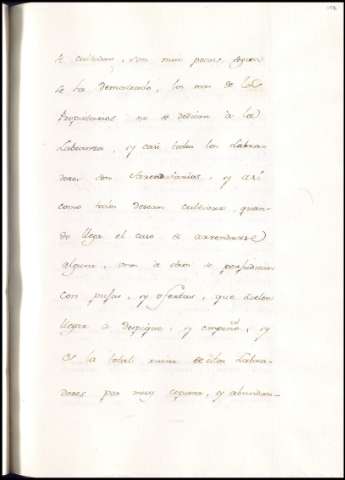 se cultiban, son mui pocos, segun
se ha demostrado, los mas de los
Propietarios no se dedican a la
Labranza, y casi todos los Labra-
dores son Arrendatarios, y asi
como todos desean cultivar, quan-
do llega el caso de arrendarse
alguna, unos a otros se perjudican
con pujas, y ofertas, que suelen
llegar a despique, y empeño, y
es la total ruina de estos Labra-
dores por muy copiosa, y abundan-